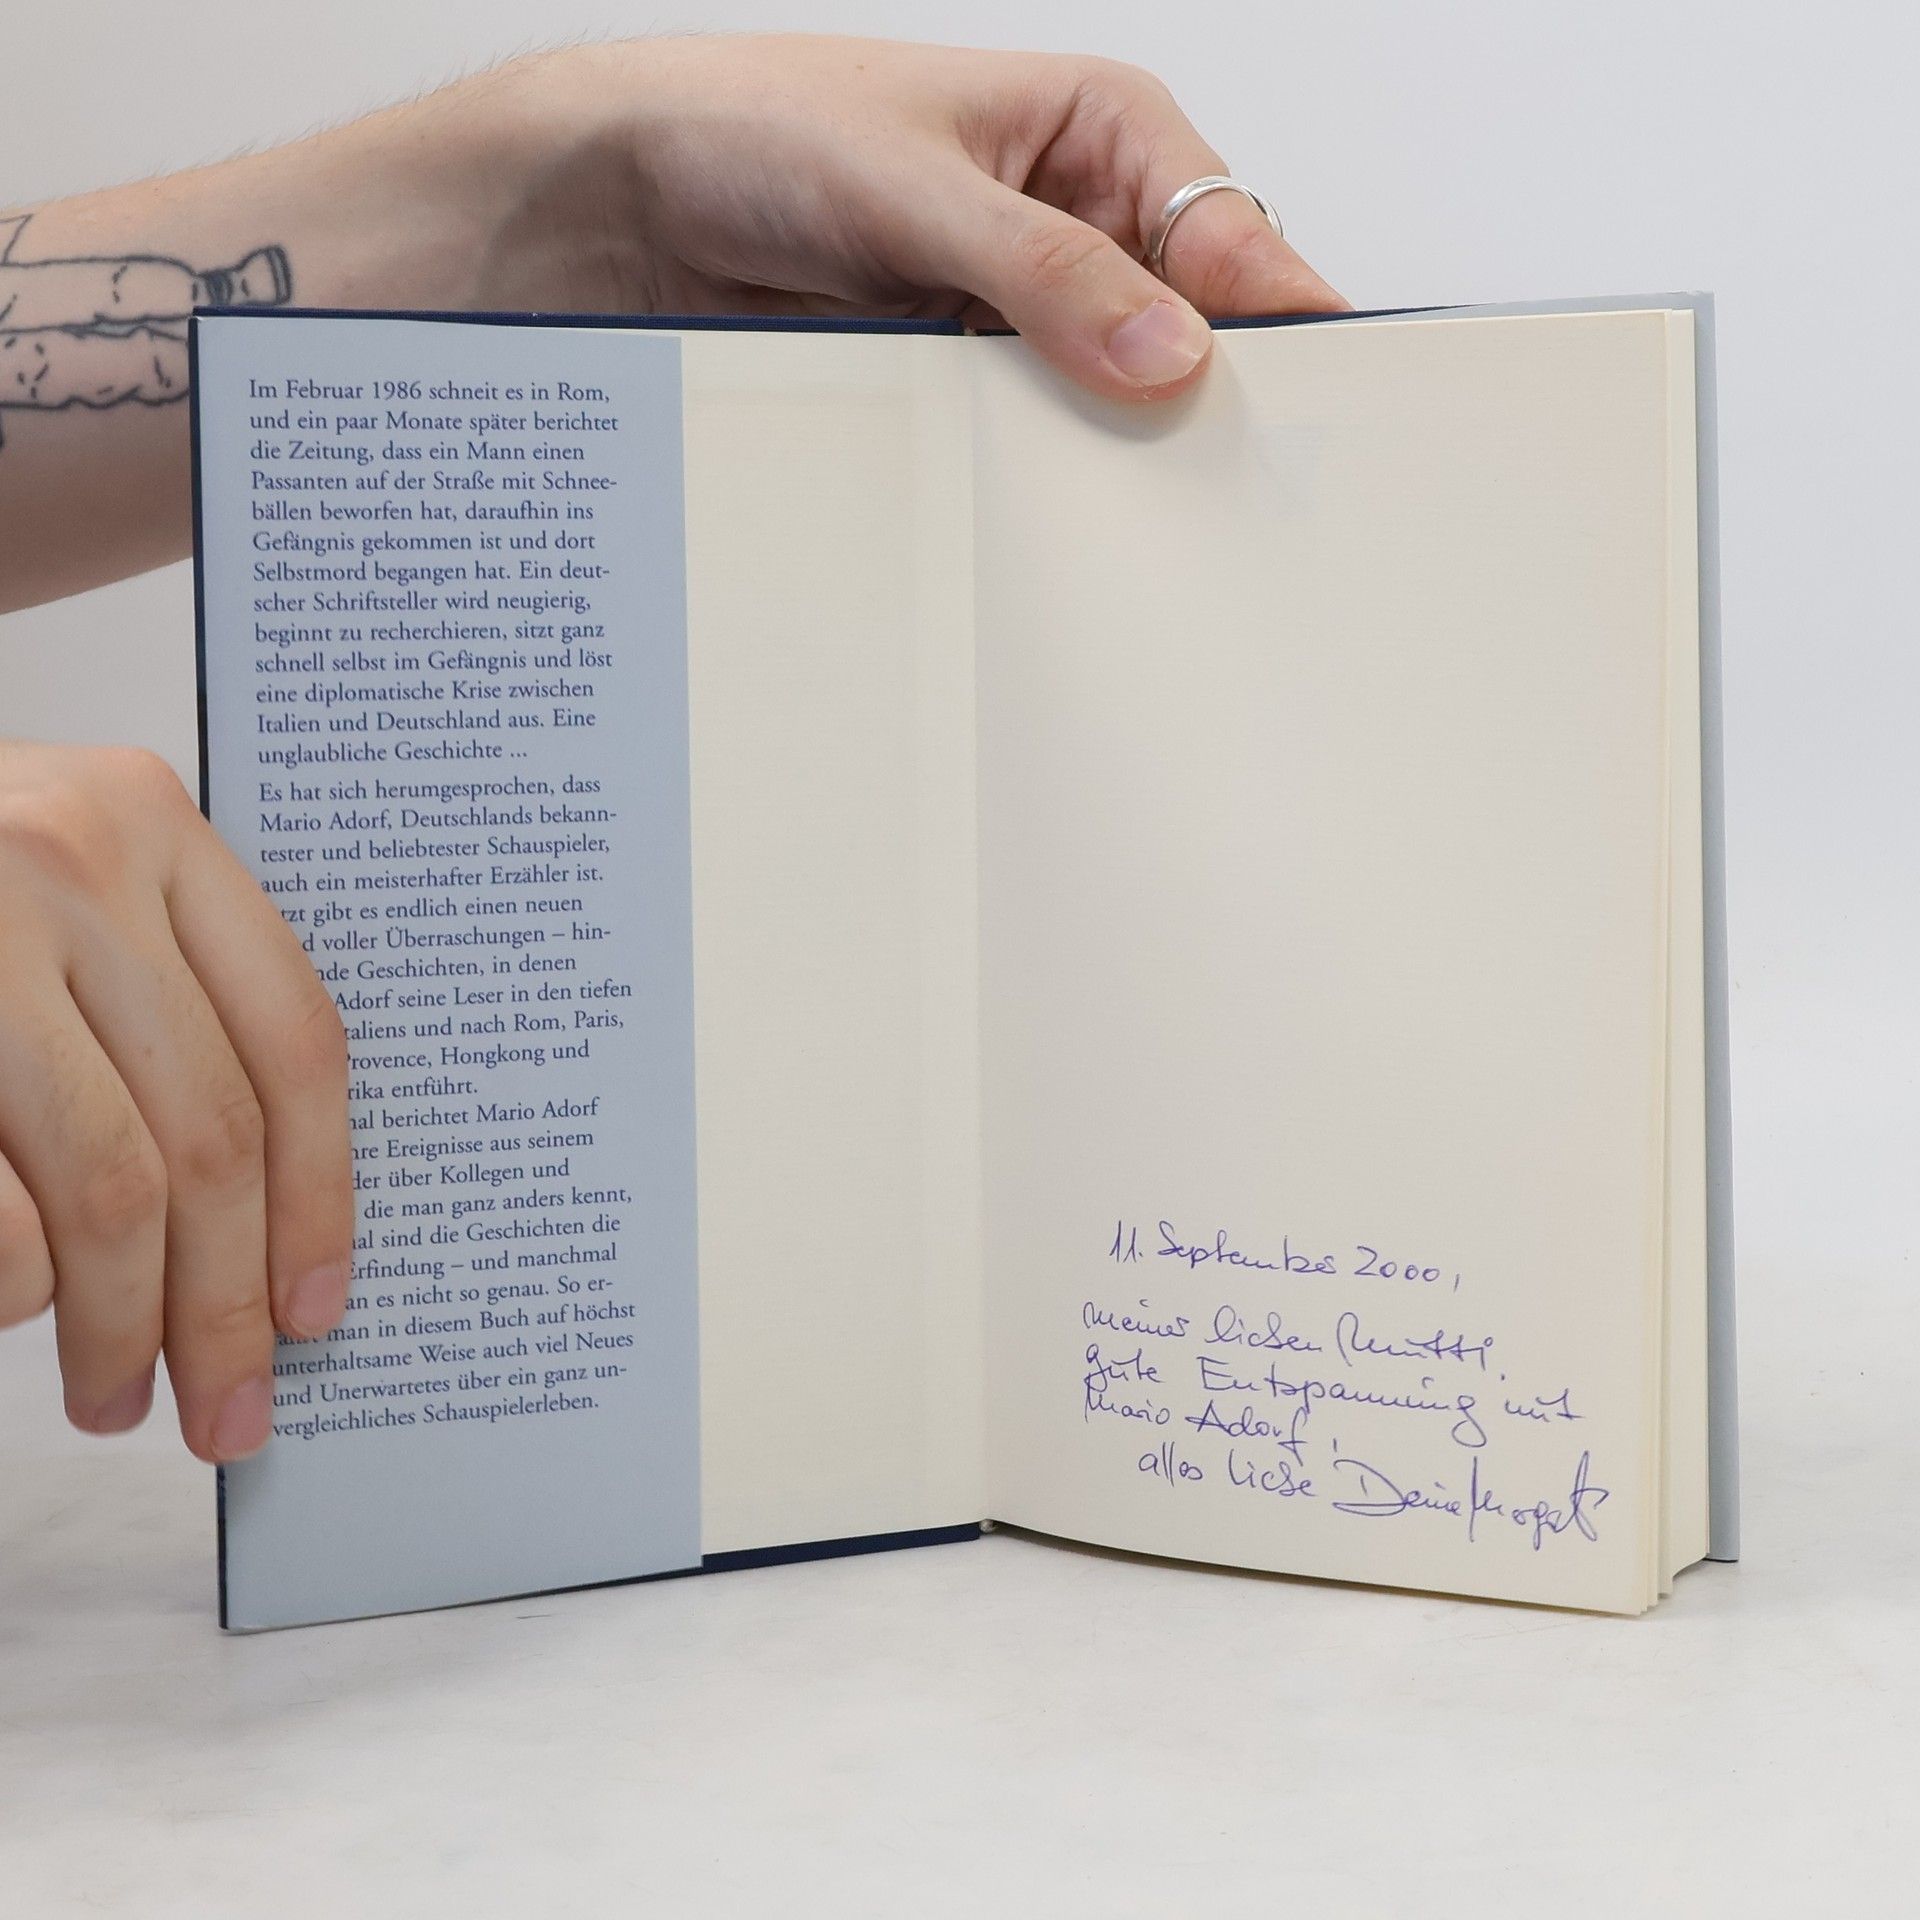 Im Februar 1986 schneit es in Rom,
und ein paar Monate später berichtet
die Zeitung, dass ein Mann einen
Passanten auf der Straße mit Schnee-
bällen beworfen hat, daraufhin ins
Gefängnis gekommen ist und dort
Selbstmord begangen hat. Ein deut-
scher Schriftsteller wird neugierig,
beginnt zu recherchieren, sitzt ganz
schnell selbst im Gefängnis und löst
eine diplomatische Krise zwischen
Italien und Deutschland aus. Eine
unglaubliche Geschichte ...
Es hat sich herumgesprochen, dass
Mario Adorf, Deutschlands bekann-
tester und beliebtester Schauspieler,
auch ein meisterhafter Erzähler ist.
tzt gibt es endlich einen neuen
d voller Überraschungen – hin-
nde Geschichten, in denen
Adorf seine Leser in den tiefen
taliens und nach Rom, Paris,
Provence, Hongkong und
rika entführt.
nal berichtet Mario Adorf
hre Ereignisse aus seinem
der über Kollegen und
die man ganz anders kennt,
nal sind die Geschichten die
Erfindung – und manchmal
an es nicht so genau. So er-
man in diesem Buch auf höchst
unterhaltsame Weise auch viel Neues
und Unerwartetes über ein ganz un-
vergleichliches Schauspielerleben.
11. September 2000,
meiner lieben Mutti,
gute Entspannung mit
Mario Adorf,
alles Liebe Deine Margot